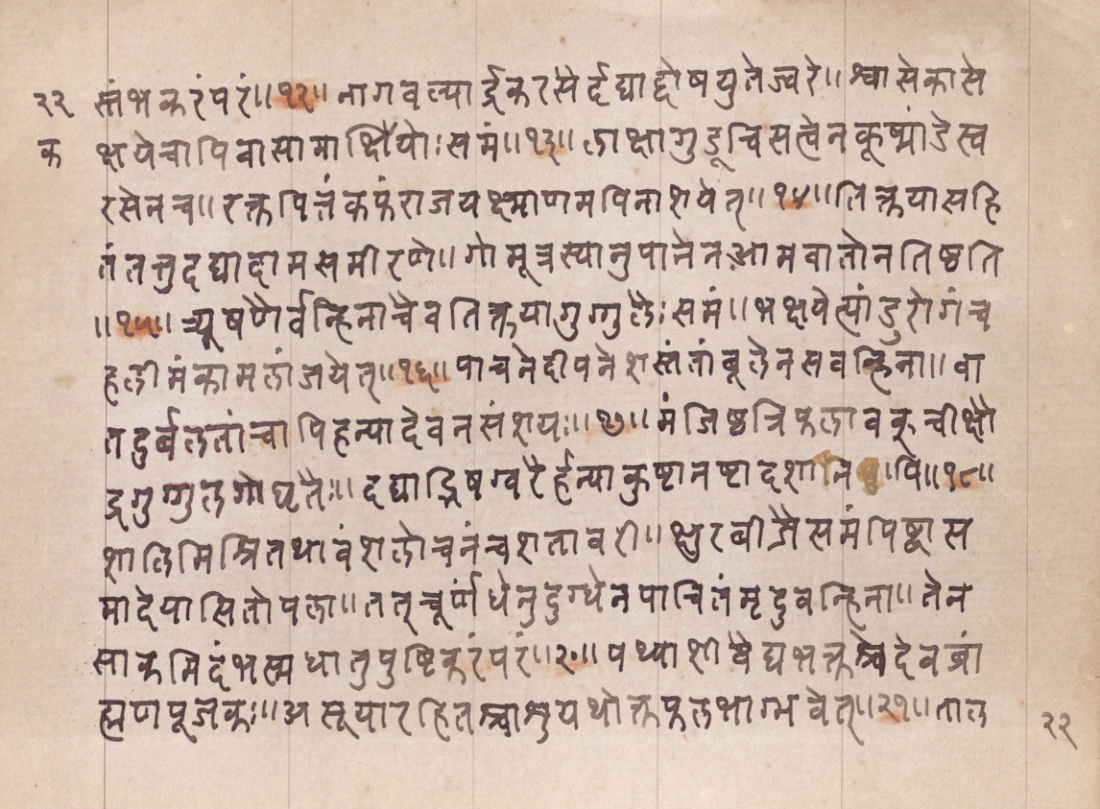 २२ स्तंभकरंपरं॥१२॥नागवल्यार्द्रकरसैर्दद्याद्दोषयुतेज्वरे॥श्वासेकासे
क क्षयेचापिवासामाक्षियोःसमं॥१३॥लाक्षागुडूचिसत्वेनकूष्मांडेस्व
रसेनच॥रक्तपित्तंकफंराजयक्ष्माणमपिनाशयेत्॥१४॥तिक्तयासहि
तंतत्तुदद्यादामसमीरणे॥गोमूत्रस्यानुपानेनआमवातोनतिष्ठति
॥१५॥त्र्यूषणैर्वन्हिनाचैवतिक्तयागुग्गुलैःसमं॥भक्षयेत्पांडुरोगंच
हलीमंकामलांजयेत्॥१६॥पाचनेदीपनेशस्तंतांबूलेनसवन्हिना॥वा
तदुर्बलतांचापिहन्यादेवनसंशयः॥१७॥मंजिष्ठत्रिफलावकूचीक्षौ
द्रगुग्गुलगोघृतैः॥दद्याद्भिषग्वरैर्हन्याकुष्टानष्टादशानि पि॥१८॥
शालिमिश्रितथावंशलोचनंचशतावरी॥क्षुरबीजैसमंपिष्ट्वास
मादेयासितोपला॥तत्चूर्णंधेनुदुग्धेनपाचितंमृदुवन्हिना॥तेन
साकमिदंभस्मधातुपुष्टिकरंपरं॥२०॥पथ्याशीवैद्यभक्तश्चदेवब्रां
ह्मणपूजकः॥असूयारहितश्चाशुयथोक्तफलभाग्भवेत्॥२१॥ताल
२२